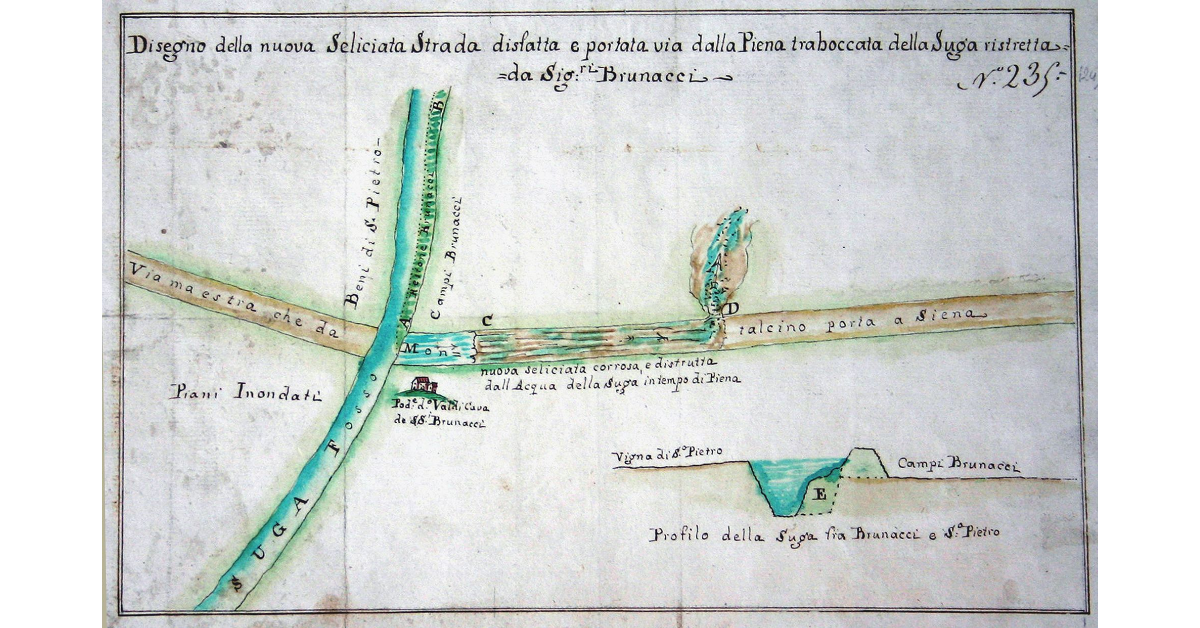 Disegno della nuova Seliciata Strada disfatta e portata via dalla Piena traboccata della Suga ristretta=
=da Sig:ri Brunacci
N.o 235.
Beni di S. Pietro
B
A
Campi Brunacci
Via maestra che da
Mon
C
A
B
D
talcino porta a Siena
nuova seliciata corrosa, e distrutta
dall'Acqua della Suga in tempo di Piena
Piani Inondati
Pod.e d.o Val di Cava
de SS.i Brunacci
SUGA Fosso
Vigna di S.o Pietro
Campi Brunacci
E
Profilo della Suga fra Brunacci e S.o Pietro